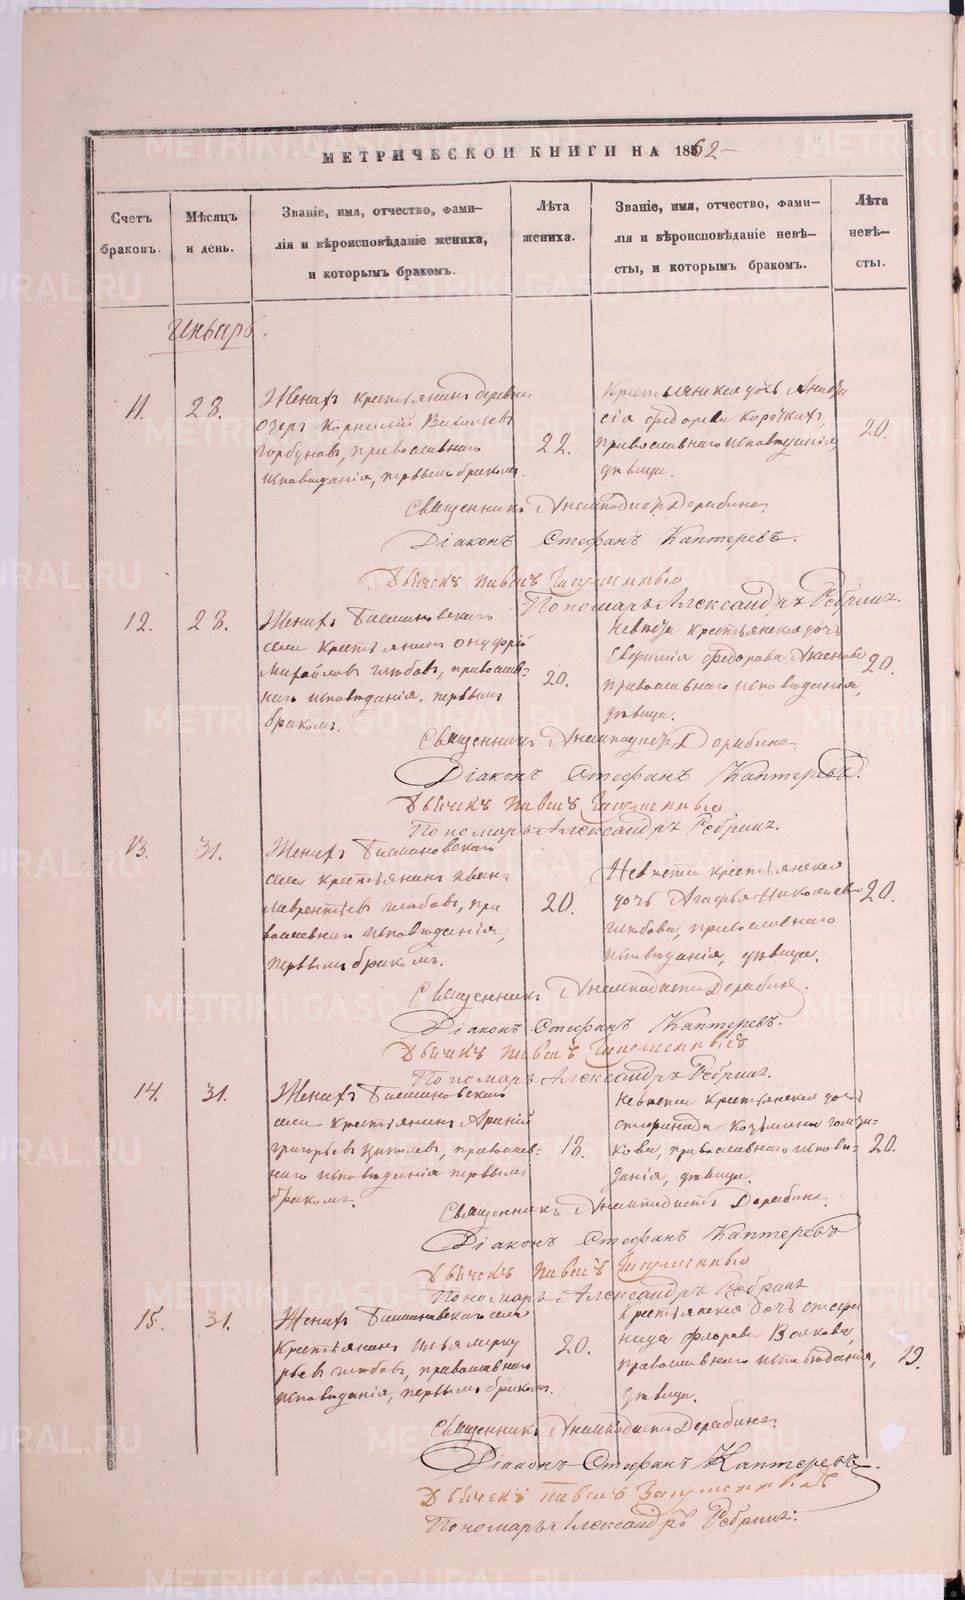 МЕТРИЧЕСКОЙ КНИГИ НА 1862
Счетъ браковъ.
Мѣсяцъ и день.
Званіе, имя, отчество, фами-
лія и вѣроисповѣданіе жениха,
и которымъ бракомъ.
Лѣта жениха.
Званіе, имя, отчество, фами-
лія и вѣроисповѣданіе невѣ-
сты, и которымъ бракомъ.
Лѣта невѣ-
сты.
Январь.
11.
28.
Женихъ крестьянинъ деревни
озеръ Корнилій Васильевъ
Горбуновъ, православнаго
исповѣданія, первымъ бракомъ.
22.
Крестьянская дочь
сія Федорова
православнаго исповѣданія,
дѣвица.
20.
Священникъ Анемподистъ Дерябинъ
Діаконъ Стефанъ Каптеревъ.
Дьячекъ Павелъ
Пономарь Александръ Ребринъ.
12.
28.
Женихъ
села крестьянинъ Онуфрій
Михайловъ Глѣбовъ, православ-
наго исповѣданія, первымъ
бракомъ.
20.
Невѣста крестьянская дочь
Евфимія Федорова
православнаго исповѣданія,
дѣвица.
20.
Священникъ Анемподистъ Дерябинъ
Діаконъ Стефанъ Каптеревъ.
Дьячекъ Павелъ
Пономарь Александръ Ребринъ.
13.
31.
Женихъ
села крестьянинъ Иванъ
Лаврентьевъ Глѣбовъ, пра
вославнаго исповѣданія,
первымъ бракомъ.
20.
Невѣста крестьянская
дочь Агафья Николаева
Глѣбова, православнаго
исповѣданія, дѣвица.
20.
Священникъ Анемподистъ Дерябинъ.
Діаконъ Стефанъ Каптеревъ.
Дьячекъ Павелъ
Пономарь Александръ Ребринъ.
14.
31.
Женихъ
села крестьянинъ
Григорьевъ православ-
наго исповѣданія первымъ
бракомъ.
18.
Невѣста крестьянская дочь
Стефанида Козьмина
кова, православнаго исповѣ-
данія, дѣвица.
20.
Священникъ Анемподистъ Дерябинъ.
Діаконъ Стефанъ Каптеревъ
Дьячекъ Павелъ
Пономарь Александръ Ребринъ
15.
31.
Женихъ села
крестьянинъ Илья Мерку
рьевъ Глѣбовъ, православнаго
исповѣданія, первымъ бракомъ.
20.
Крестьянская дочь Стефа
нида Флорова Волкова,
православнаго исповѣданія,
дѣвица.
19.
Священникъ Анемподистъ Дерябинъ
Діаконъ Стефанъ Каптеревъ.
Дьячекъ Павелъ
Пономарь Александръ Ребринъ.
METRIKI.GASO-URAL.RU